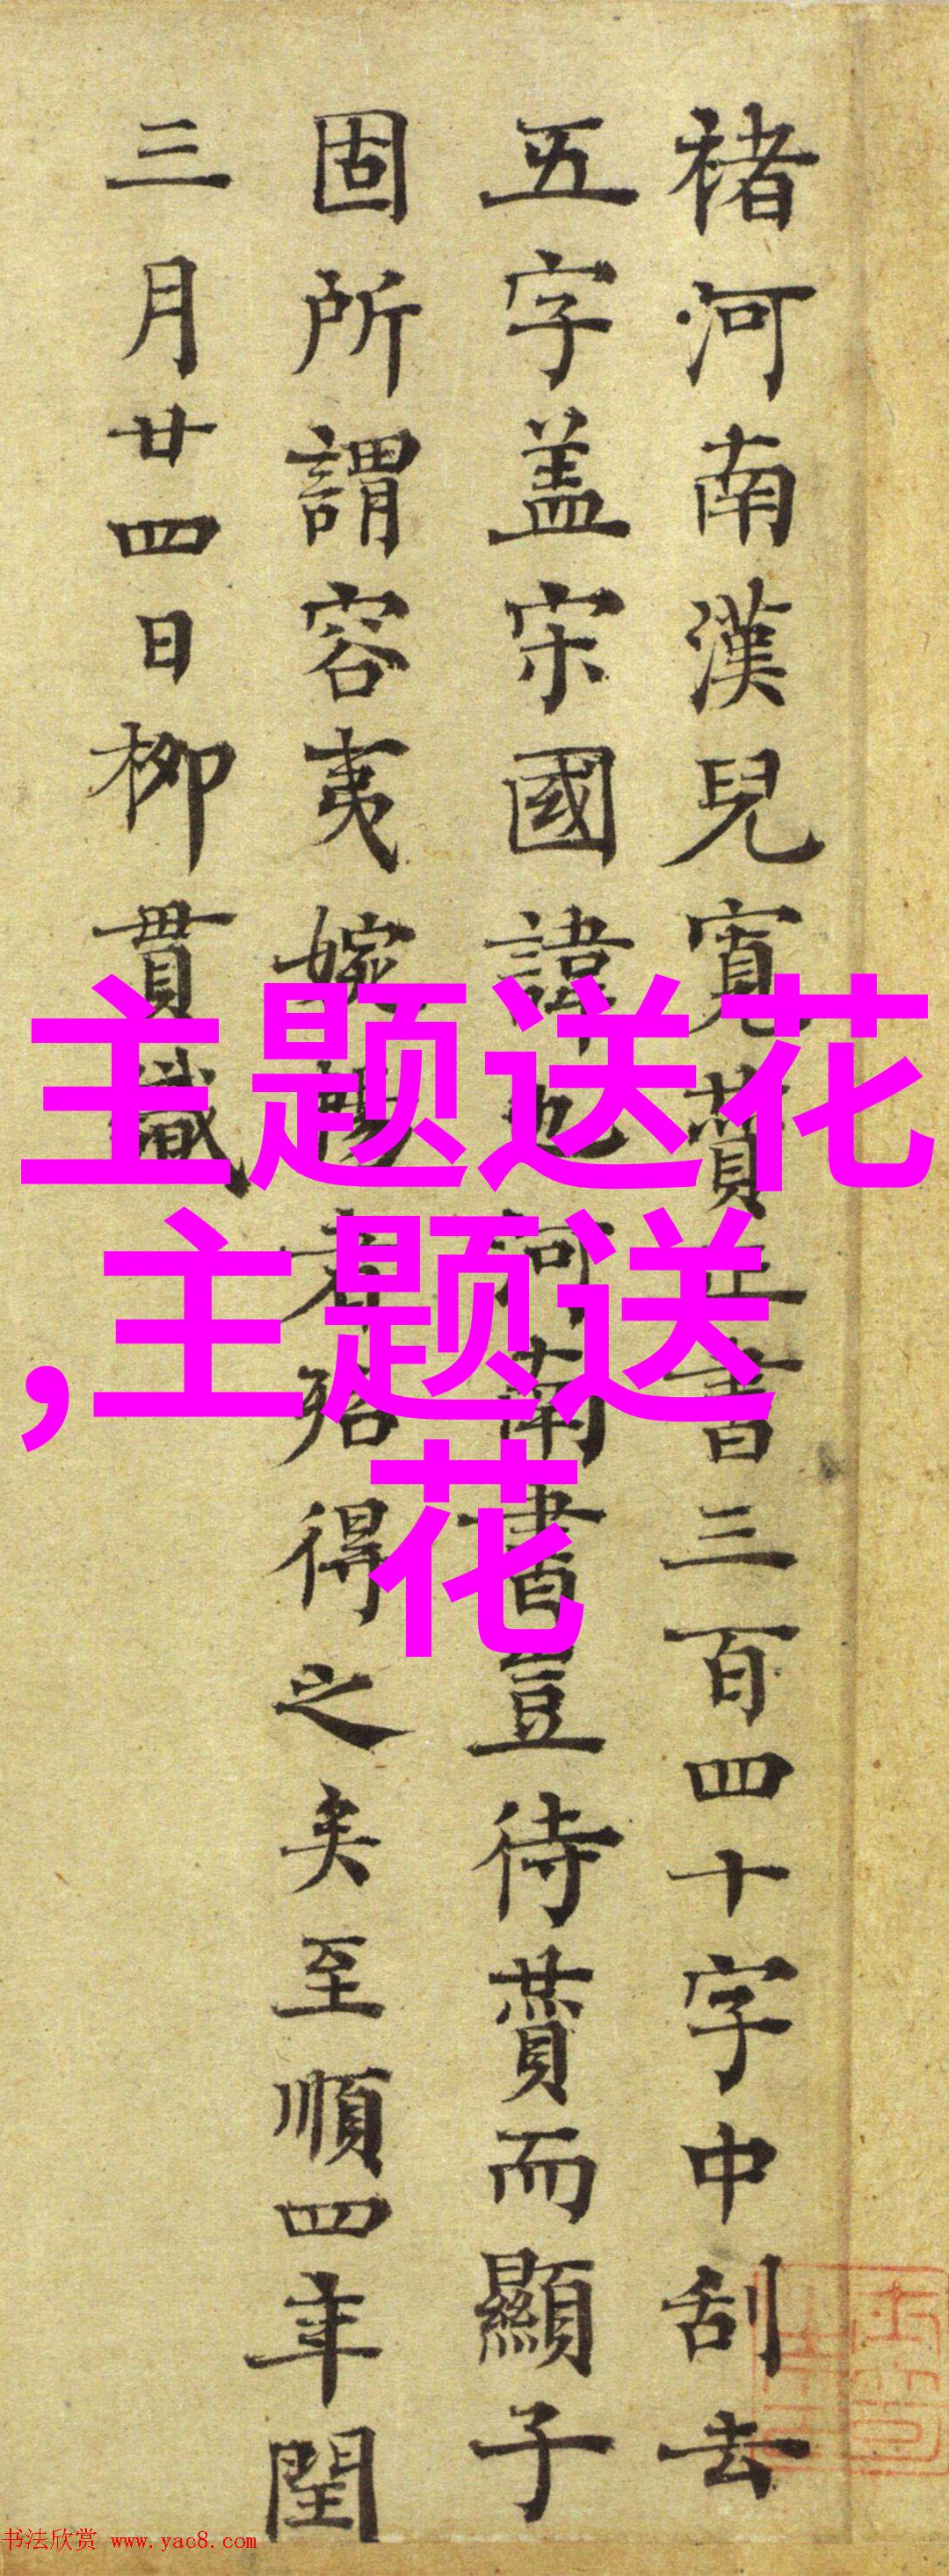 褚河南漢兒寬賛正書三百四十字中刮去
五字盖宋國諱也河南書豈待賛而顯子
固所謂容夷婉暢者殆得之矣至順四年閏
三月廿四日柳貫識
主题送花
,主题送
花
书法欣赏 www.yac8.com